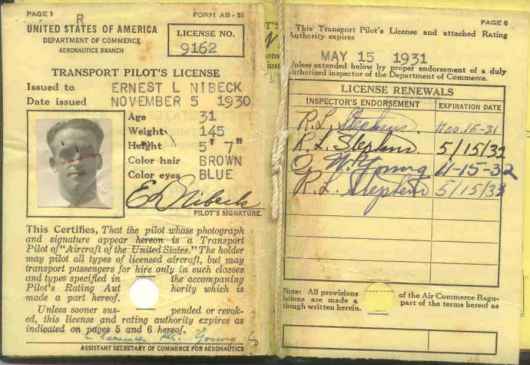 PAGE 1
FORM AB-
R
UNITED STATES OF AMERICA
DEPARTMENT OF COMMERCE
AERONAUTICS BRANCH
LICENSE NO.
9162
TRANSPORT PILOT'S LICENSE
Issued to ERNEST L NIBECK
Date issued NOVEMBER 5 1930
Age 31
Weight 145
Height 5' 7"
Color hair BROWN
Color eyes BLUE
E L Nibeck
PILOT'S SIGNATURE.
This Certifies, That the pilot whose photograph
and signature appear hereon is a Transport
Pilot of "Aircraft of the United States." The holder
may pilot all types of licensed aircraft, but may
transport passengers for hire only in such classes
and types specified in the accompanying
Pilot's Rating Aut hority which is
made a part hereof.
Unless sooner sus- pended or revok-
ed, this license and rating authority expires as
indicated on pages 5 and 6 hereof.
Clarence M. Young
ASSISTANT SECRETARY OF COMMERCE FOR AERONAUTICS
PAGE 6
This Transport Pilot's License and attached Rating
Authority expires
MAY 15 1931
Unless extended below by proper endorsement of a duly
authorized inspector of the Department of Commerce.
LICENSE RENEWALS
INSPECTOR'S ENDORSEMENT
EXPIRATION DATE
R.L. Nov. 15-31
R.L. Stephens 5/15/32
G W Young 11-15-32
R.L. Stephens 5/15/33
Note: All provisions of the Air Commerce Regu-
lations are made a part of the terms hereof as
though written herein.